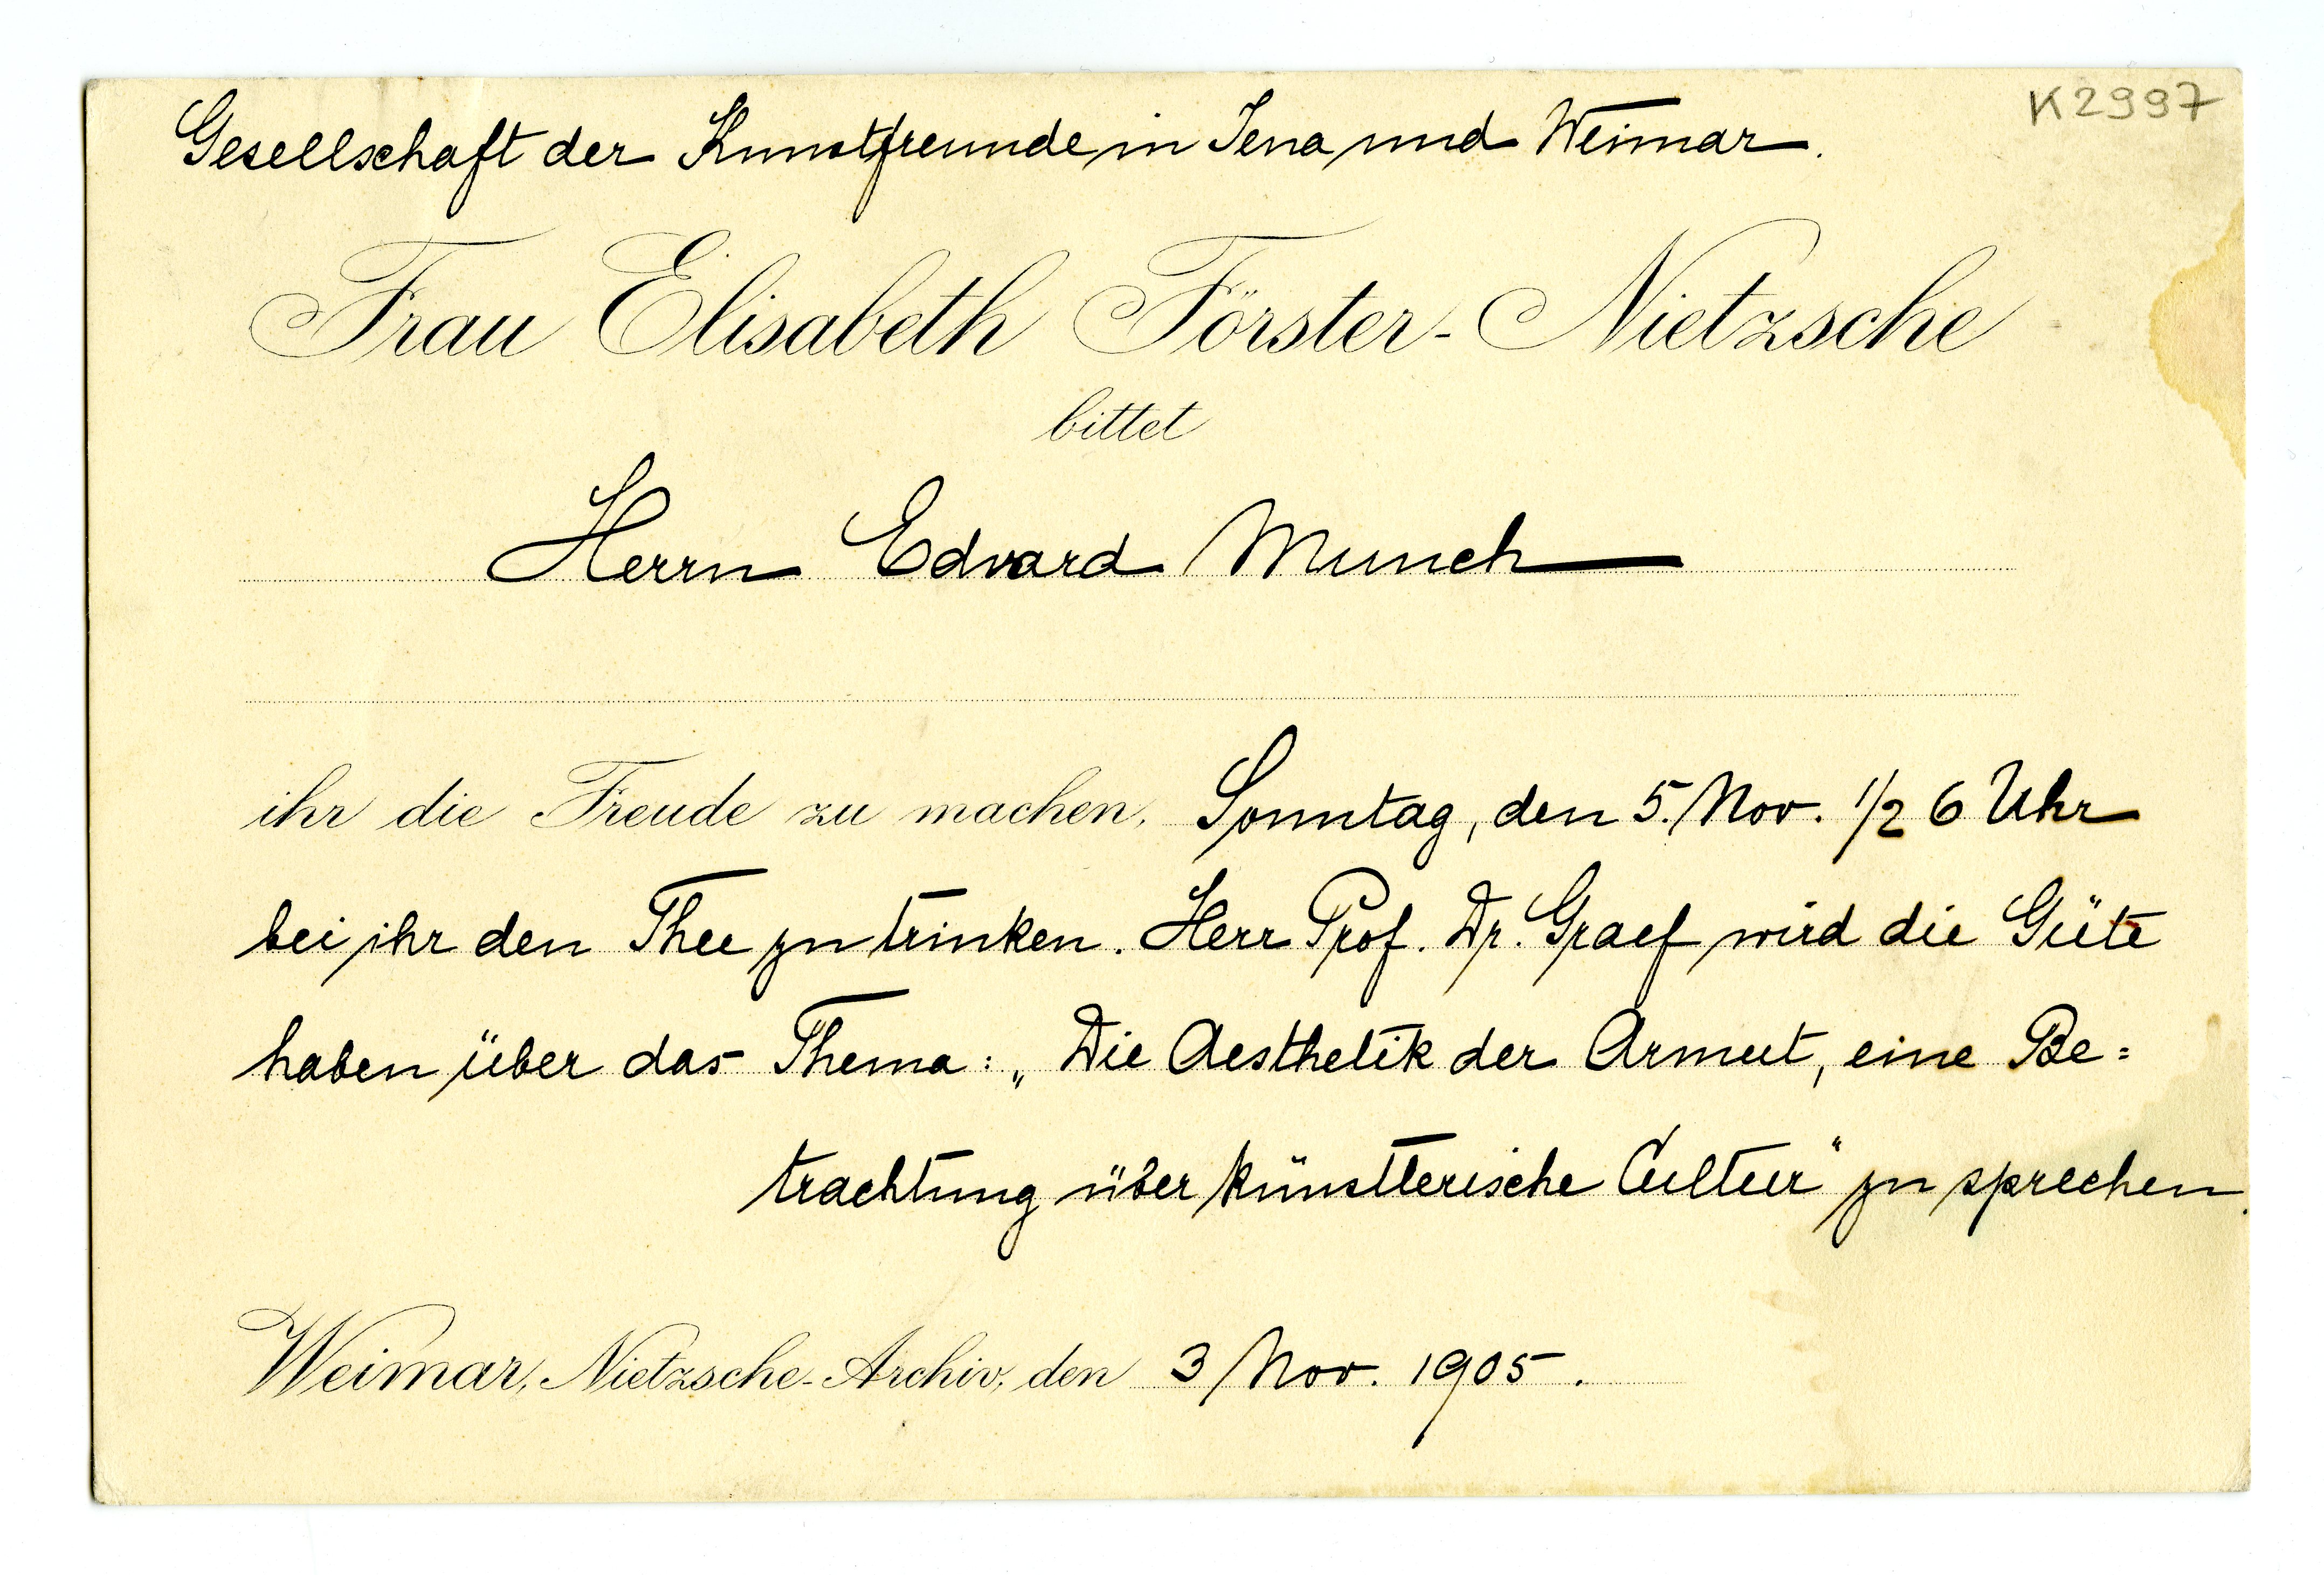 K2997
Gesellschaft der Kunstfreunde in Jena und Weimar.
Frau Elisabeth Förster-Nietzsche
bittet
Herrn Edvard Munch
ihr die Freude zu machen, Sonntag, den 5. Nov. 1/2 6 Uhr
bei ihr den Thee zu trinken. Herr Prof. Dr. Graef wird die Güte
haben über das Thema: „Die Aesthetik der Armut, eine Be=
trachtung über künstlerische Cultur“ zu sprechen.
Weimar, Nietzsche-Archiv, den 3 Nov. 1905.